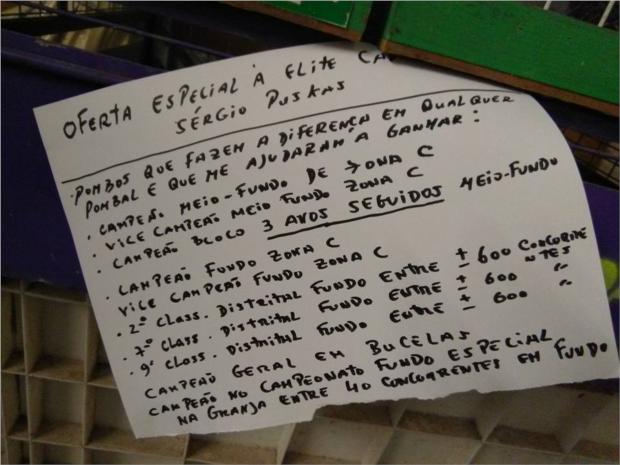 OFERTA ESPECIAL À ELITE
SÉRGIO PUSKAS
POMBOS QUE FAZEM A DIFERENÇA EM QUALQUER
POMBAL E QUE ME AJUDARAM A GANHAR:
· CAMPEÃO MEIO-FUNDO DE ZONA C
· VICE CAMPEÃO MEIO FUNDO ZONA C
· CAMPEÃO BLOCO 3 ANOS SEGUIDOS MEIO-FUNDO
· CAMPEÃO FUNDO ZONA C
VICE CAMPEÃO FUNDO ZONA C
· 2º CLASS. DISTRITAL FUNDO ENTRE ± 600 CONCORRENTES
· 7º CLASS. DISTRITAL FUNDO ENTRE ± 600 "
· 9º CLASS. DISTRITAL FUNDO ENTRE ± 600 "
CAMPEÃO GERAL EM BUCELAS
CAMPEÃO NO CAMPEONATO FUNDO ESPECIAL
NA GRANJA ENTRE 40 CONCORRENTES EM FUNDO